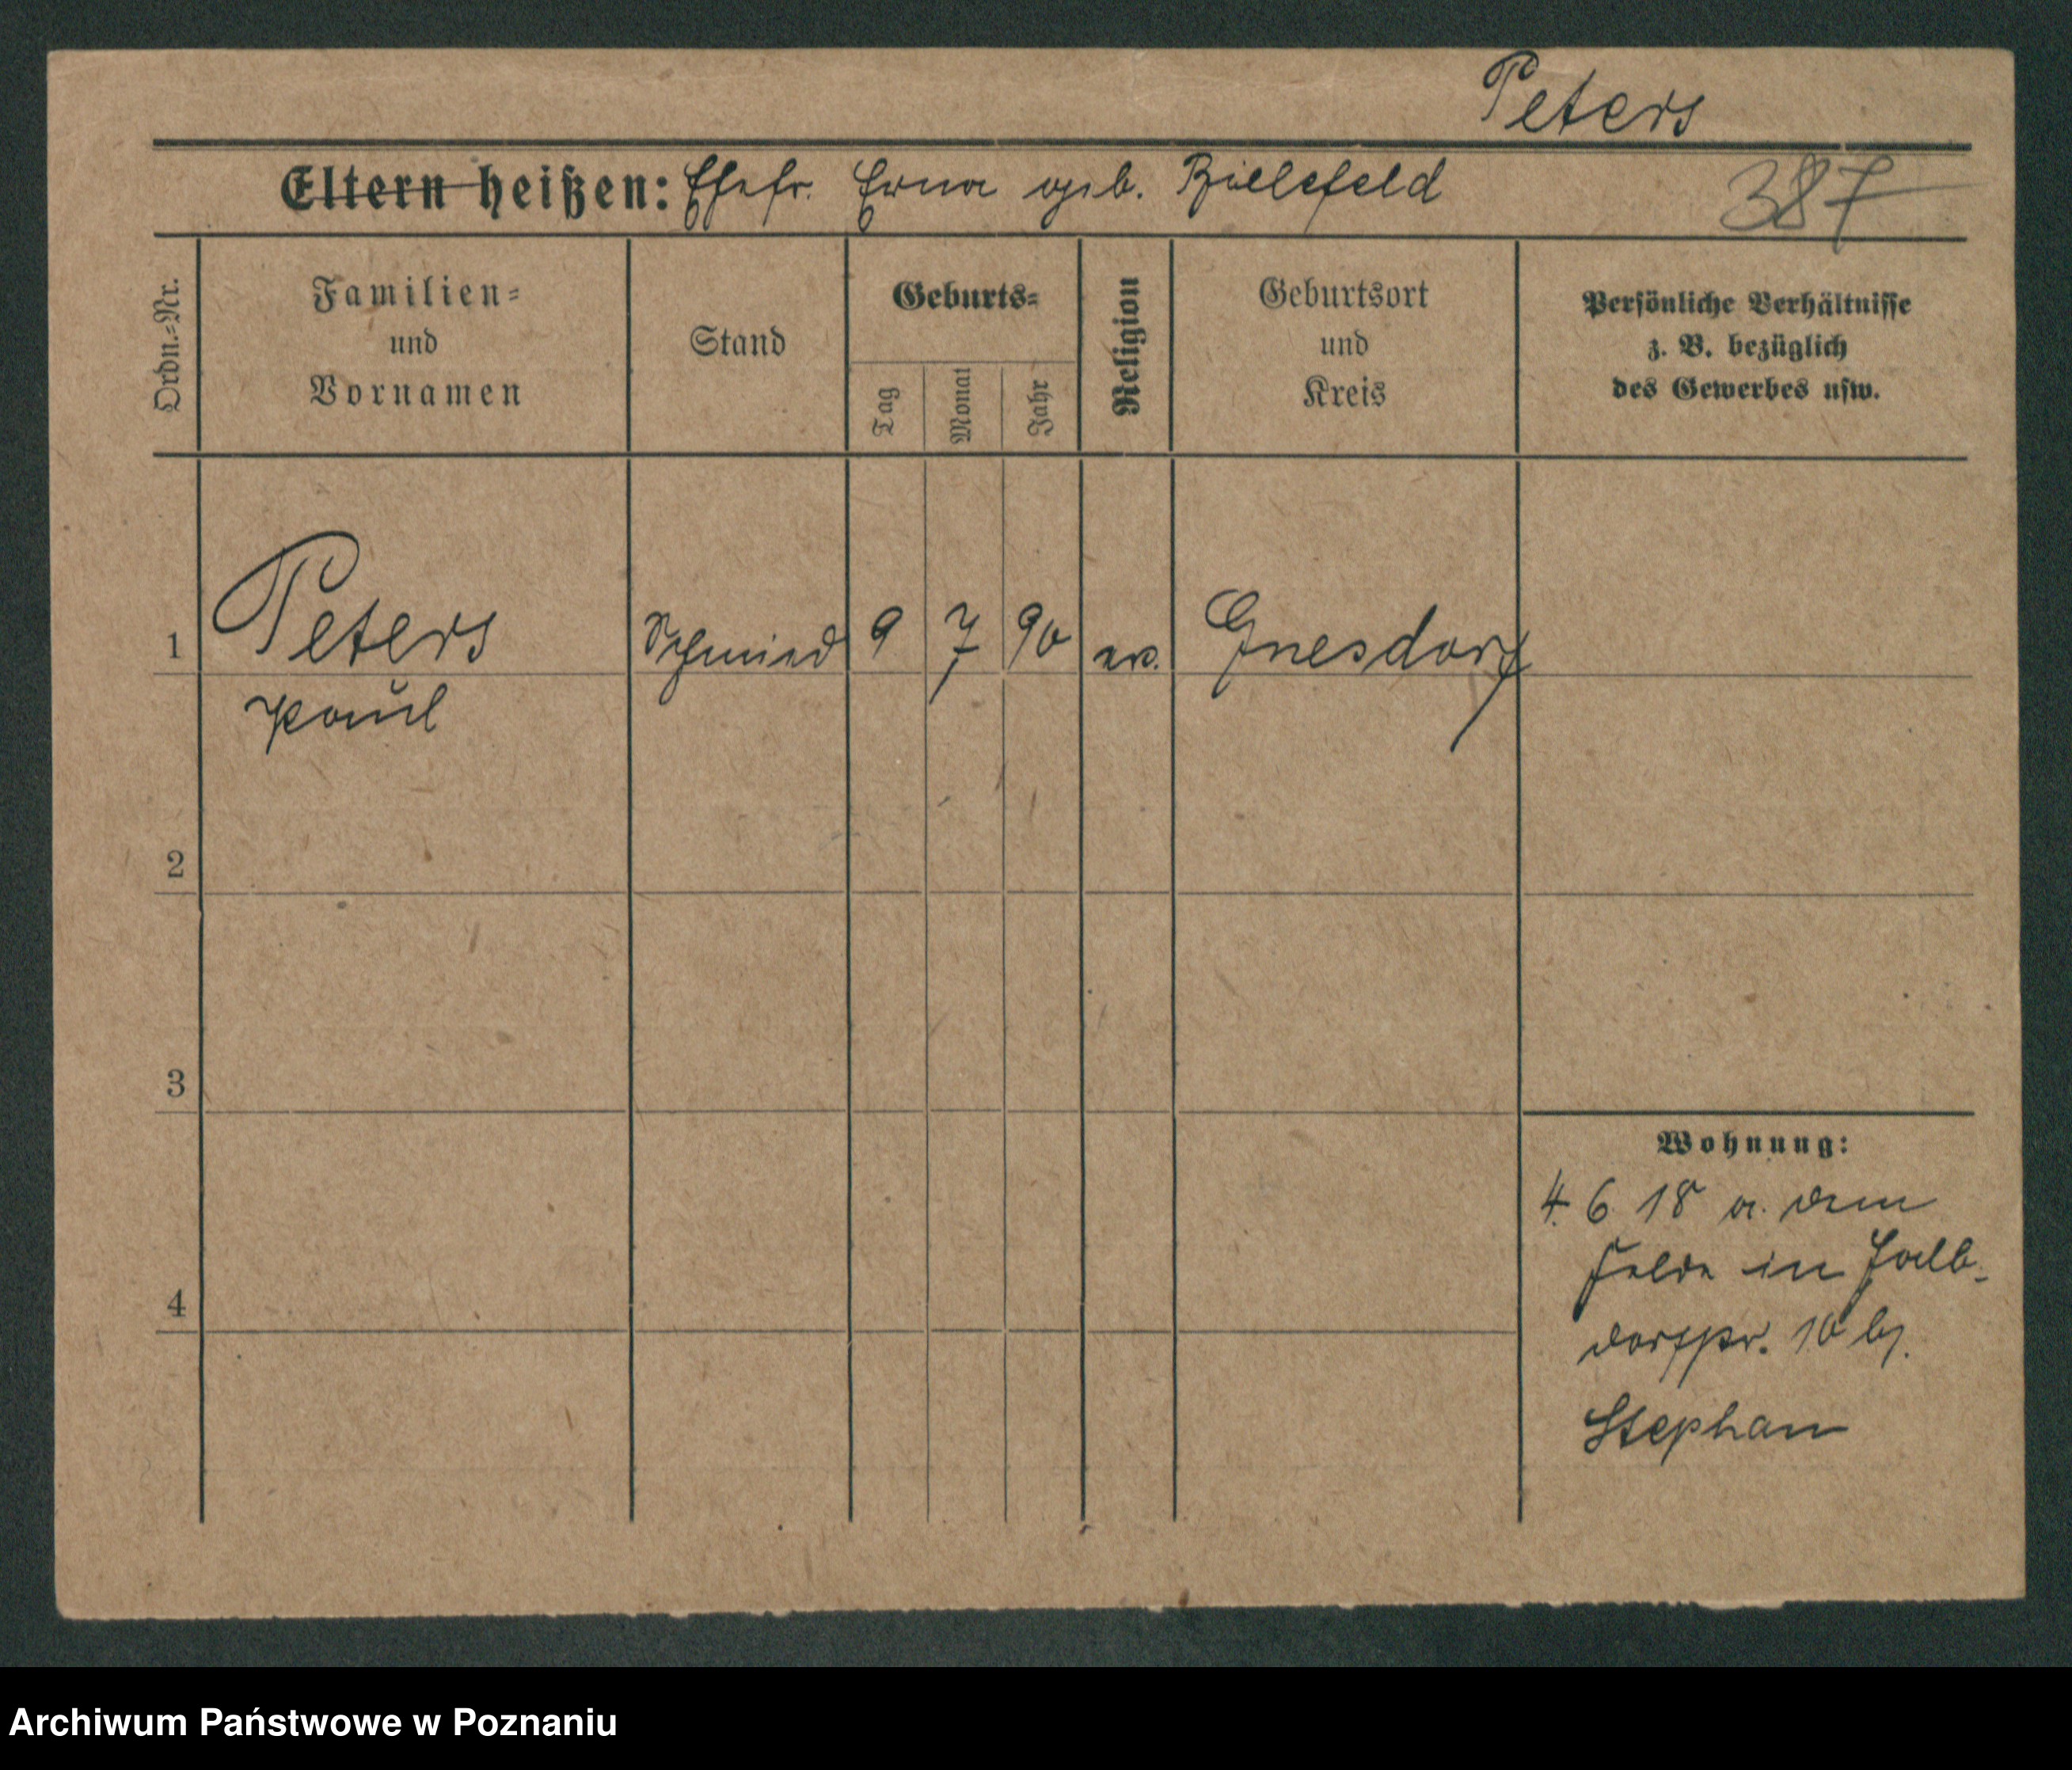 Peters
Eltern heißen: Ehefr. Erna geb. Bielefeld 387
Ordn.-Nr.
Familien-
und
Vornamen
Stand
Geburts-
Tag
Monat
Jahr
Religion
Geburtsort
und
Kreis
Persönliche Verhältnisse
z. B. bezüglich
des Gewerbes usw.
1 Peters Schmied 9 7 90 ev. Gnesdorf
Paul
2
3
4
Wohnung:
4. 6 18 a. dem
Felde in
dorfstr. 10 b/.
Stephan
Archiwum Państwowe w Poznaniu